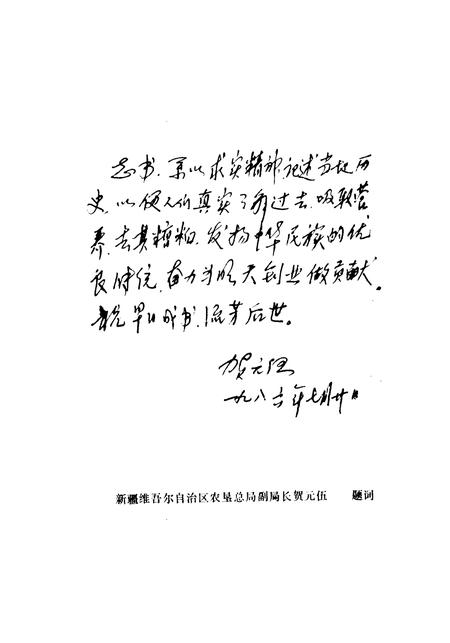 志书,系以求实精神,记述当地历
史,以便人们真实了解过去,吸取营
养,去其糟粕,发扬中华民族的优
良传统,奋力为明天创业做贡献。
早日成书,流芳后世。
贺元伍
一九八六年七月廿日
新疆维吾尔自治区农垦总局副局长贺元伍 题词